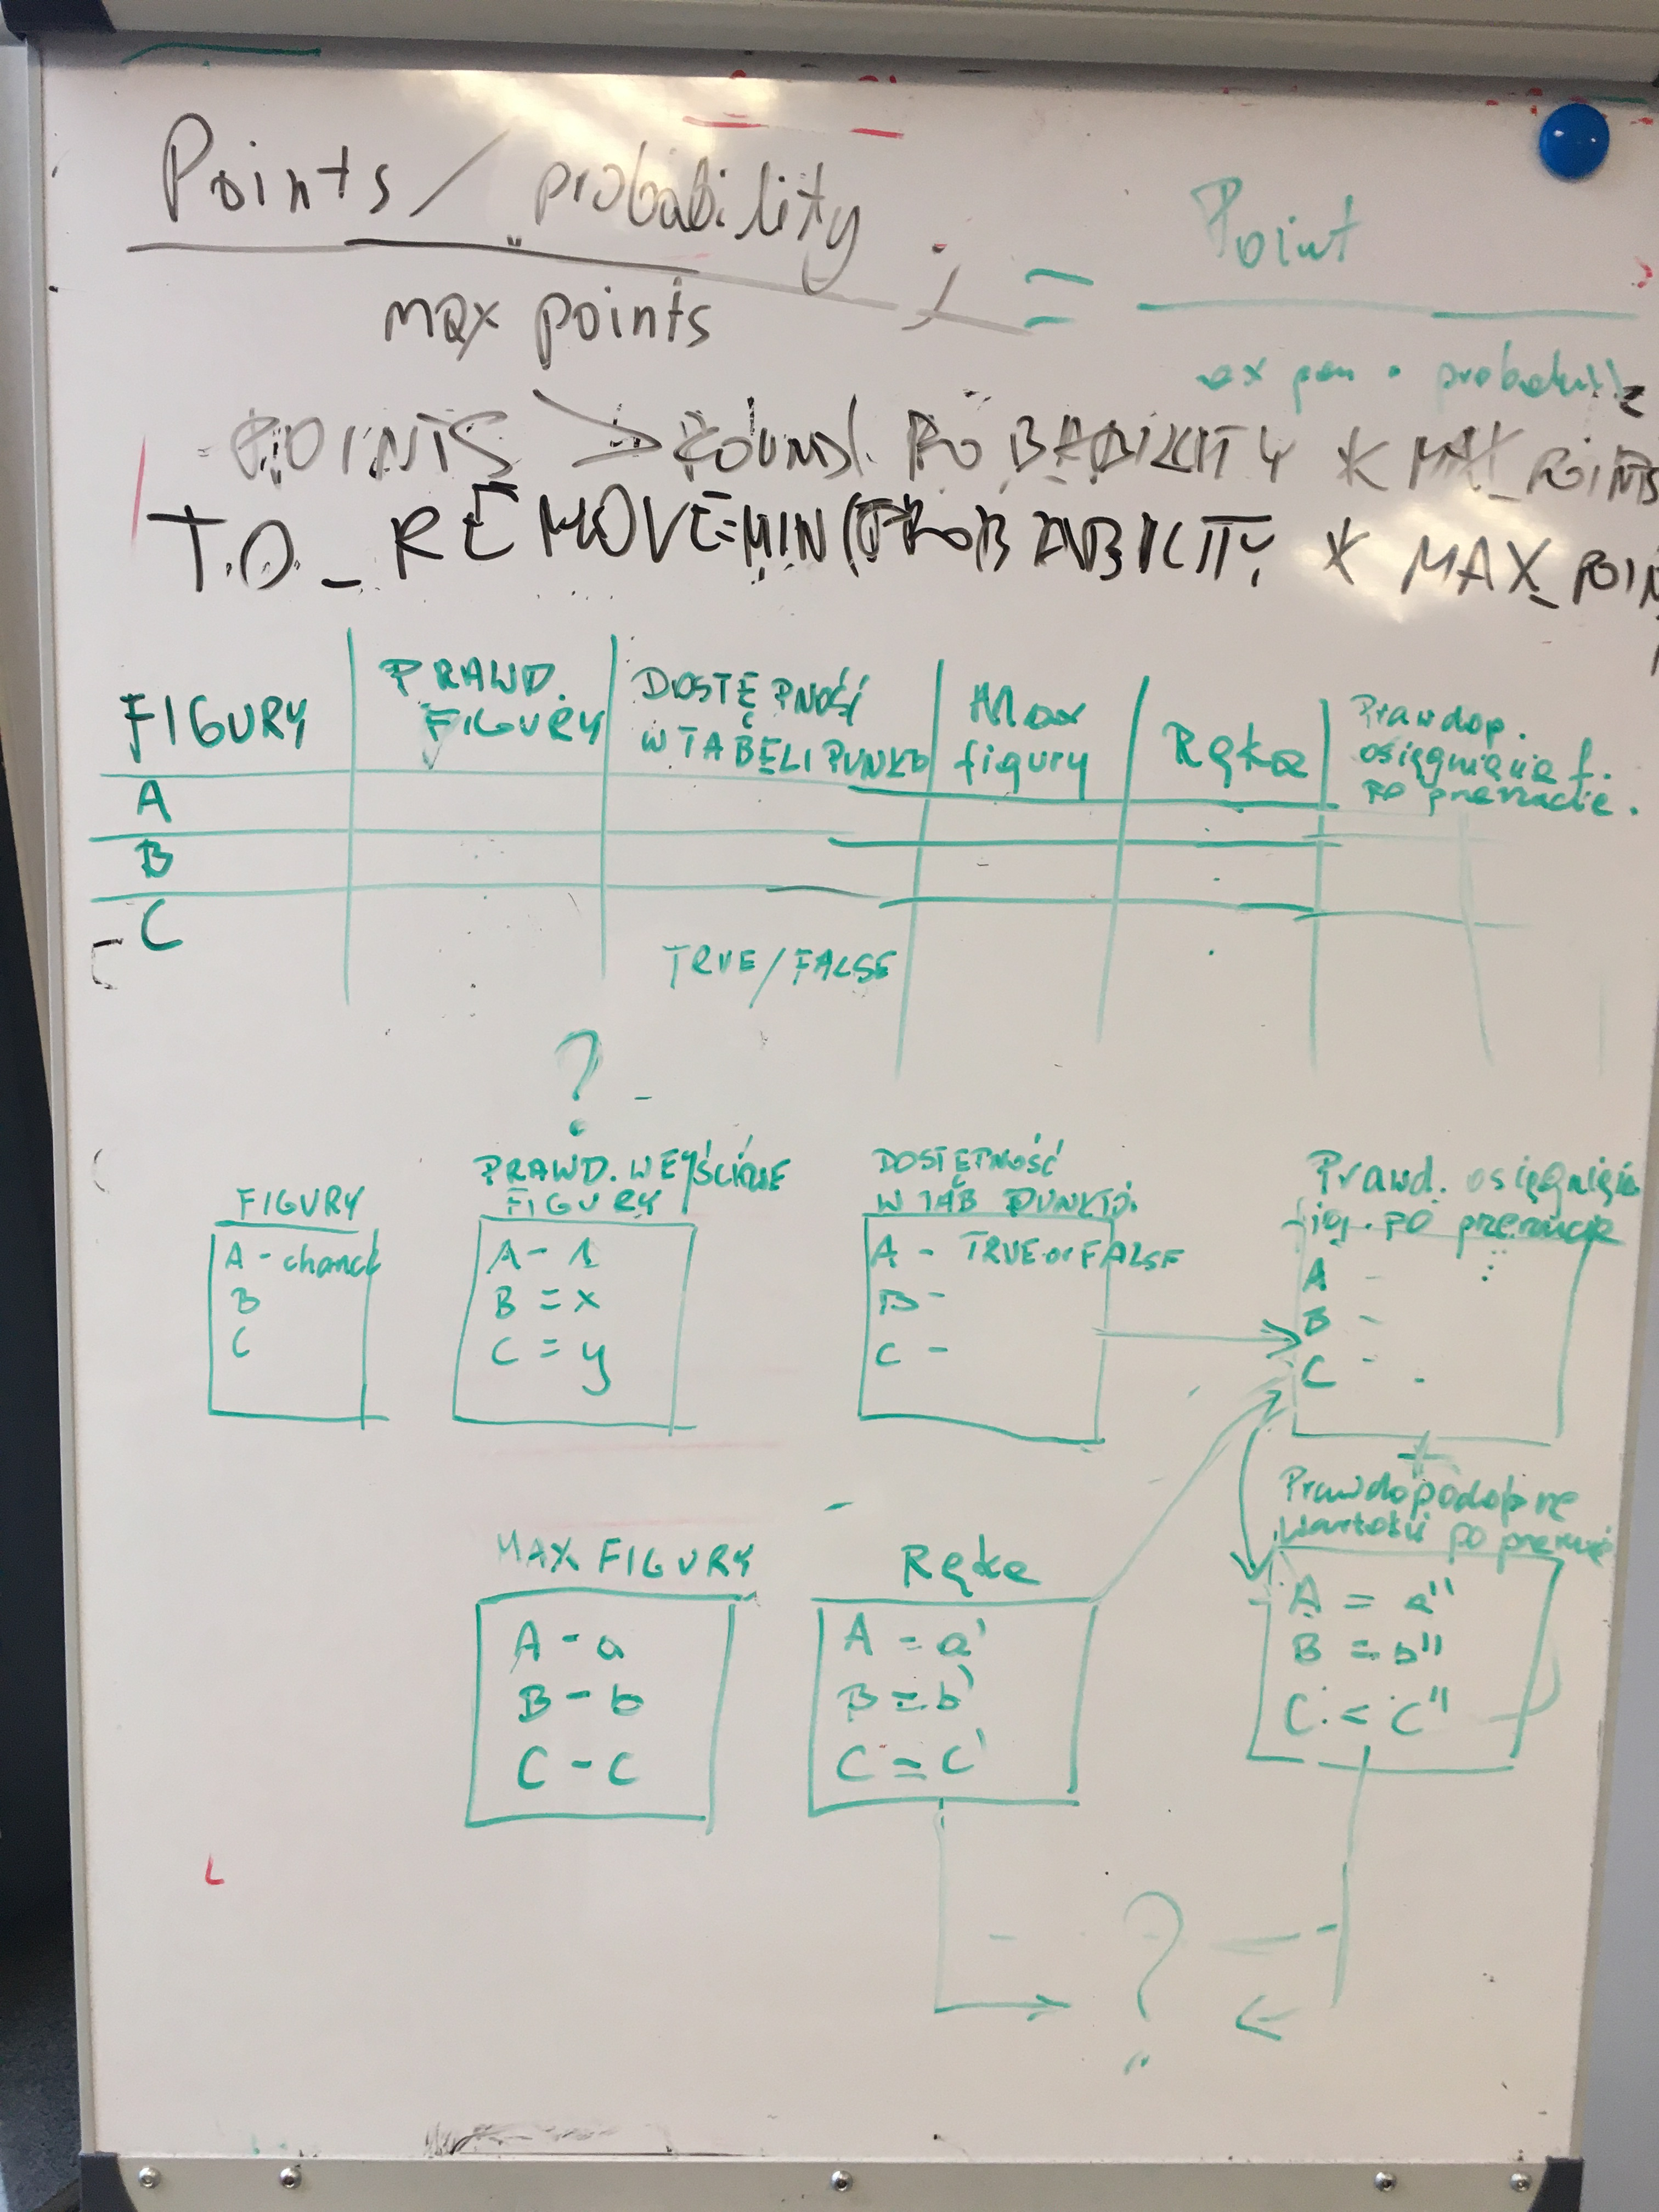 Points / probability ; = Point
max points
ax pon • probability
POINTS > ROUND. PROBABILITY * MAX_POINTS
TO_REMOVE=MIN(PROBABILITY * MAX_POIN
FIGURY
PRAWD.
FIGURY
DOSTĘPNOŚĆ
W TABELI PUNKTÓ
Max
figury
Ręka
Prawdop.
osiągnięcia f.
po przerzucie.
A
B
C
TRUE/FALSE
?
FIGURY
A - chance
B
C
PRAWD. WEJŚCIOWE
FIGURY
A - 1
B = x
C = y
DOSTĘPNOŚĆ
W TAB PUNKTÓ.
A - TRUE or FALSE
B -
C -
Prawd. osięgnięcia
fig. po przerzucie
A -
B -
C -
MAX FIGURY
A - a
B - b
C - c
Ręka
A = a'
B = b'
C = c'
+
Prawdopodobne
wartości po przerzucie
A = a''
B = b''
C = c''
?